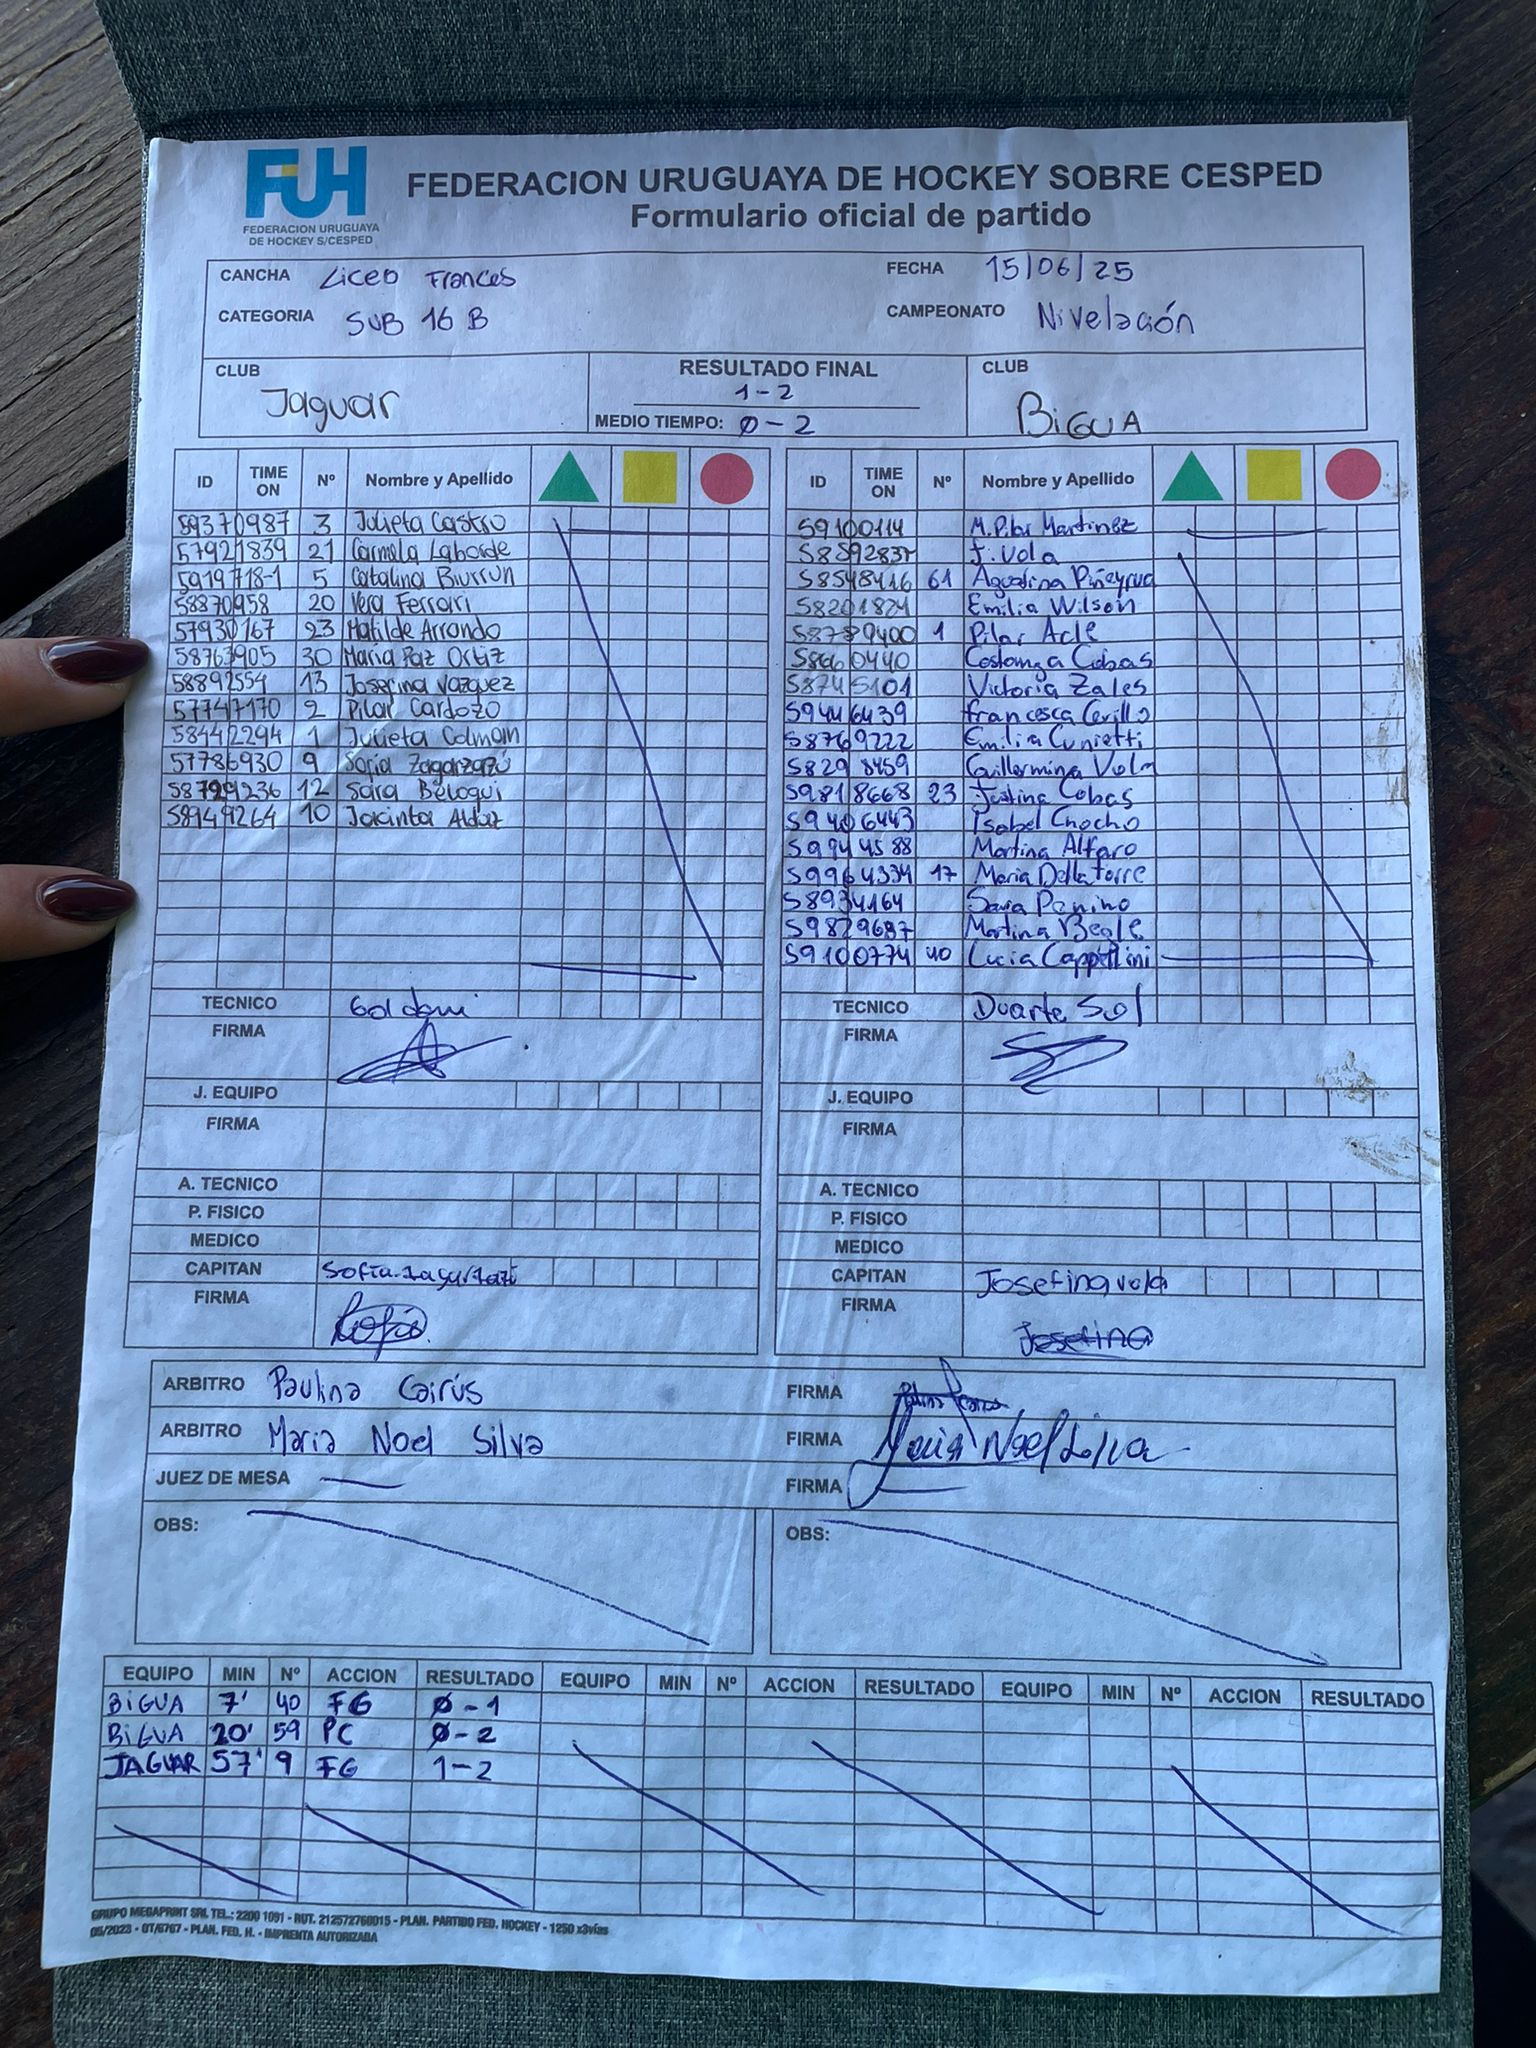 FUH
FEDERACION URUGUAYA
DE HOCKEY S/CESPED
FEDERACION URUGUAYA DE HOCKEY SOBRE CESPED
Formulario oficial de partido
CANCHA Liceo Frances FECHA 15/06/25
CATEGORIA SUB 16 B CAMPEONATO Nivelación
CLUB Jaguar
RESULTADO FINAL 1-2
MEDIO TIEMPO: 0-2
CLUB BIGUA
ID TIME ON Nº Nombre y Apellido
59370987 3 Julieta Castro
57921839 21 Carmela Laborde
5919718-1 5 Catalina Biurrun
58870958 20 Vera Ferrari
57930167 23 Matilde Arrondo
58763905 30 Maria Paz Ortiz
58892554 13 Josefina Vazquez
57747170 2 Pilar Cardozo
58442294 1 Julieta Colman
57786930 9 Sofia Zagarzazú
58729236 12 Sara Beloqui
58949264 10 Jacinta Aldaz
TECNICO Goldoni
FIRMA
J. EQUIPO
FIRMA
A. TECNICO
P. FISICO
MEDICO
CAPITAN
FIRMA
ID TIME ON Nº Nombre y Apellido
59100114 M. Pilar Martinez
58592837 J. Vola
58548416 61 Agustina Piñeyrua
58201824 Emilia Wilson
58789400 1 Pilar Acle
58660440 Costanza Cobas
58745101 Victoria Zales
59446439 Francesca Cerillo
58769222 Emilia Cunietti
58298459 Guillermina Vola
59818668 23 Justina Cobas
59406443 Isabel Chocho
59944588 Martina Alfaro
59964334 17 Maria Dellatorre
58934164 Sara Penino
59829687 Martina Beale
59100774 40 Lucia Cappellini
TECNICO Duarte Sol
FIRMA
J. EQUIPO
FIRMA
A. TECNICO
P. FISICO
MEDICO
CAPITAN Josefina vola
FIRMA Josefina
ARBITRO Paulina Cairús FIRMA
ARBITRO Maria Noel Silva FIRMA Maria Noel Silva
JUEZ DE MESA — FIRMA —
OBS: OBS:
EQUIPO MIN Nº ACCION RESULTADO EQUIPO MIN Nº ACCION RESULTADO EQUIPO MIN Nº ACCION RESULTADO
BIGUA 7' 40 FG 0-1
BIGUA 20' 59 PC 0-2
JAGUAR 57' 9 FG 1-2
GRUPO MEGAPRINT SRL TEL.: 2200 1091 - RUT. 212572760015 - PLAN. PARTIDO FED. HOCKEY - 1250 x3vías
05/2023 - OT/6767 - PLAN. FED. H. - IMPRENTA AUTORIZADA